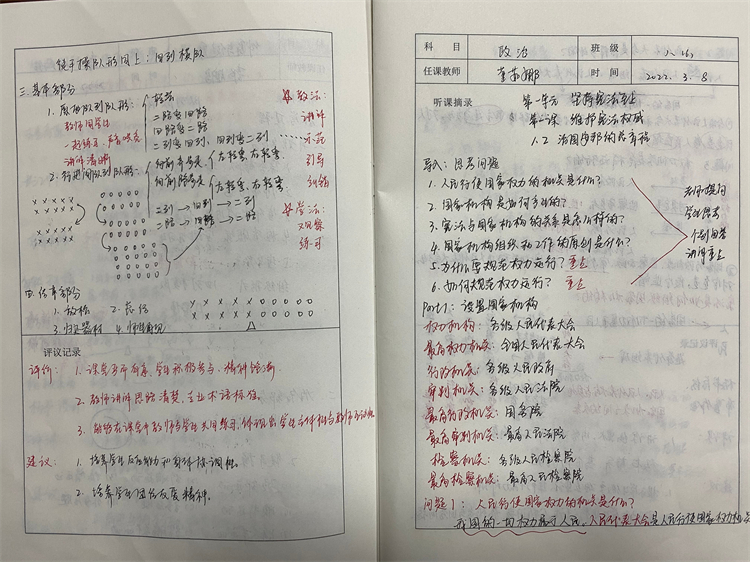 徒手操队形图上：四列横队
三.基本部分
1. 原地队列队形：
教师同学生
一起练习，声音嘹亮
讲解清晰
二列变四列，四列变二列
2. 行进间队列队形：
左转弯，右转弯
左转弯、右转弯
二列→四列→二列
二路→四路→二路
教法：
讲解
示范
引导
训练
学法：
练习
四.结束部分
1. 放松 2. 总结
3. 归还器材 4. 师生再见
评议记录
评价：1. 课堂秩序有序，学生积极参与，精神饱满。
2. 教师讲解思路清楚，专业术语标准。
3. 能够在课堂中教师与学生共同练习，体现出学生主体性与教师主导性
建议：1. 培养学生反应能力和身体协调性。
2. 培养学生团结友爱精神。
科目 政治 班级
任课教师 时间 2022.3.8
听课摘录 第一单元 坚持宪法至上
第一课 维护宪法权威
1.2 治国安邦的总章程
导入：思考问题
1. 人民行使国家权力的机关是什么？
2. 国家机构是如何产生的？
3. 宪法与国家机构的关系是怎么样的？
4. 国家机构组织和工作的原则是什么？
5. 为什么要规范权力运行？重点
6. 如何规范权力运行？重点
老师提问
学生思考
个别回答
讲解重点
Part1：设置国家机构
权力机构：各级人民代表大会
最高权力机关：全国人民代表大会
行政机关：各级人民政府
审判机关：各级人民法院
最高行政机关：国务院
最高审判机关：最高人民法院
检察机关：各级人民检察院
最高检察机关：最高人民检察院
问题1：人民行使国家权力的机关是什么？
我国的一切权力属于人民，人民代表大会是人民行使国家权力机关